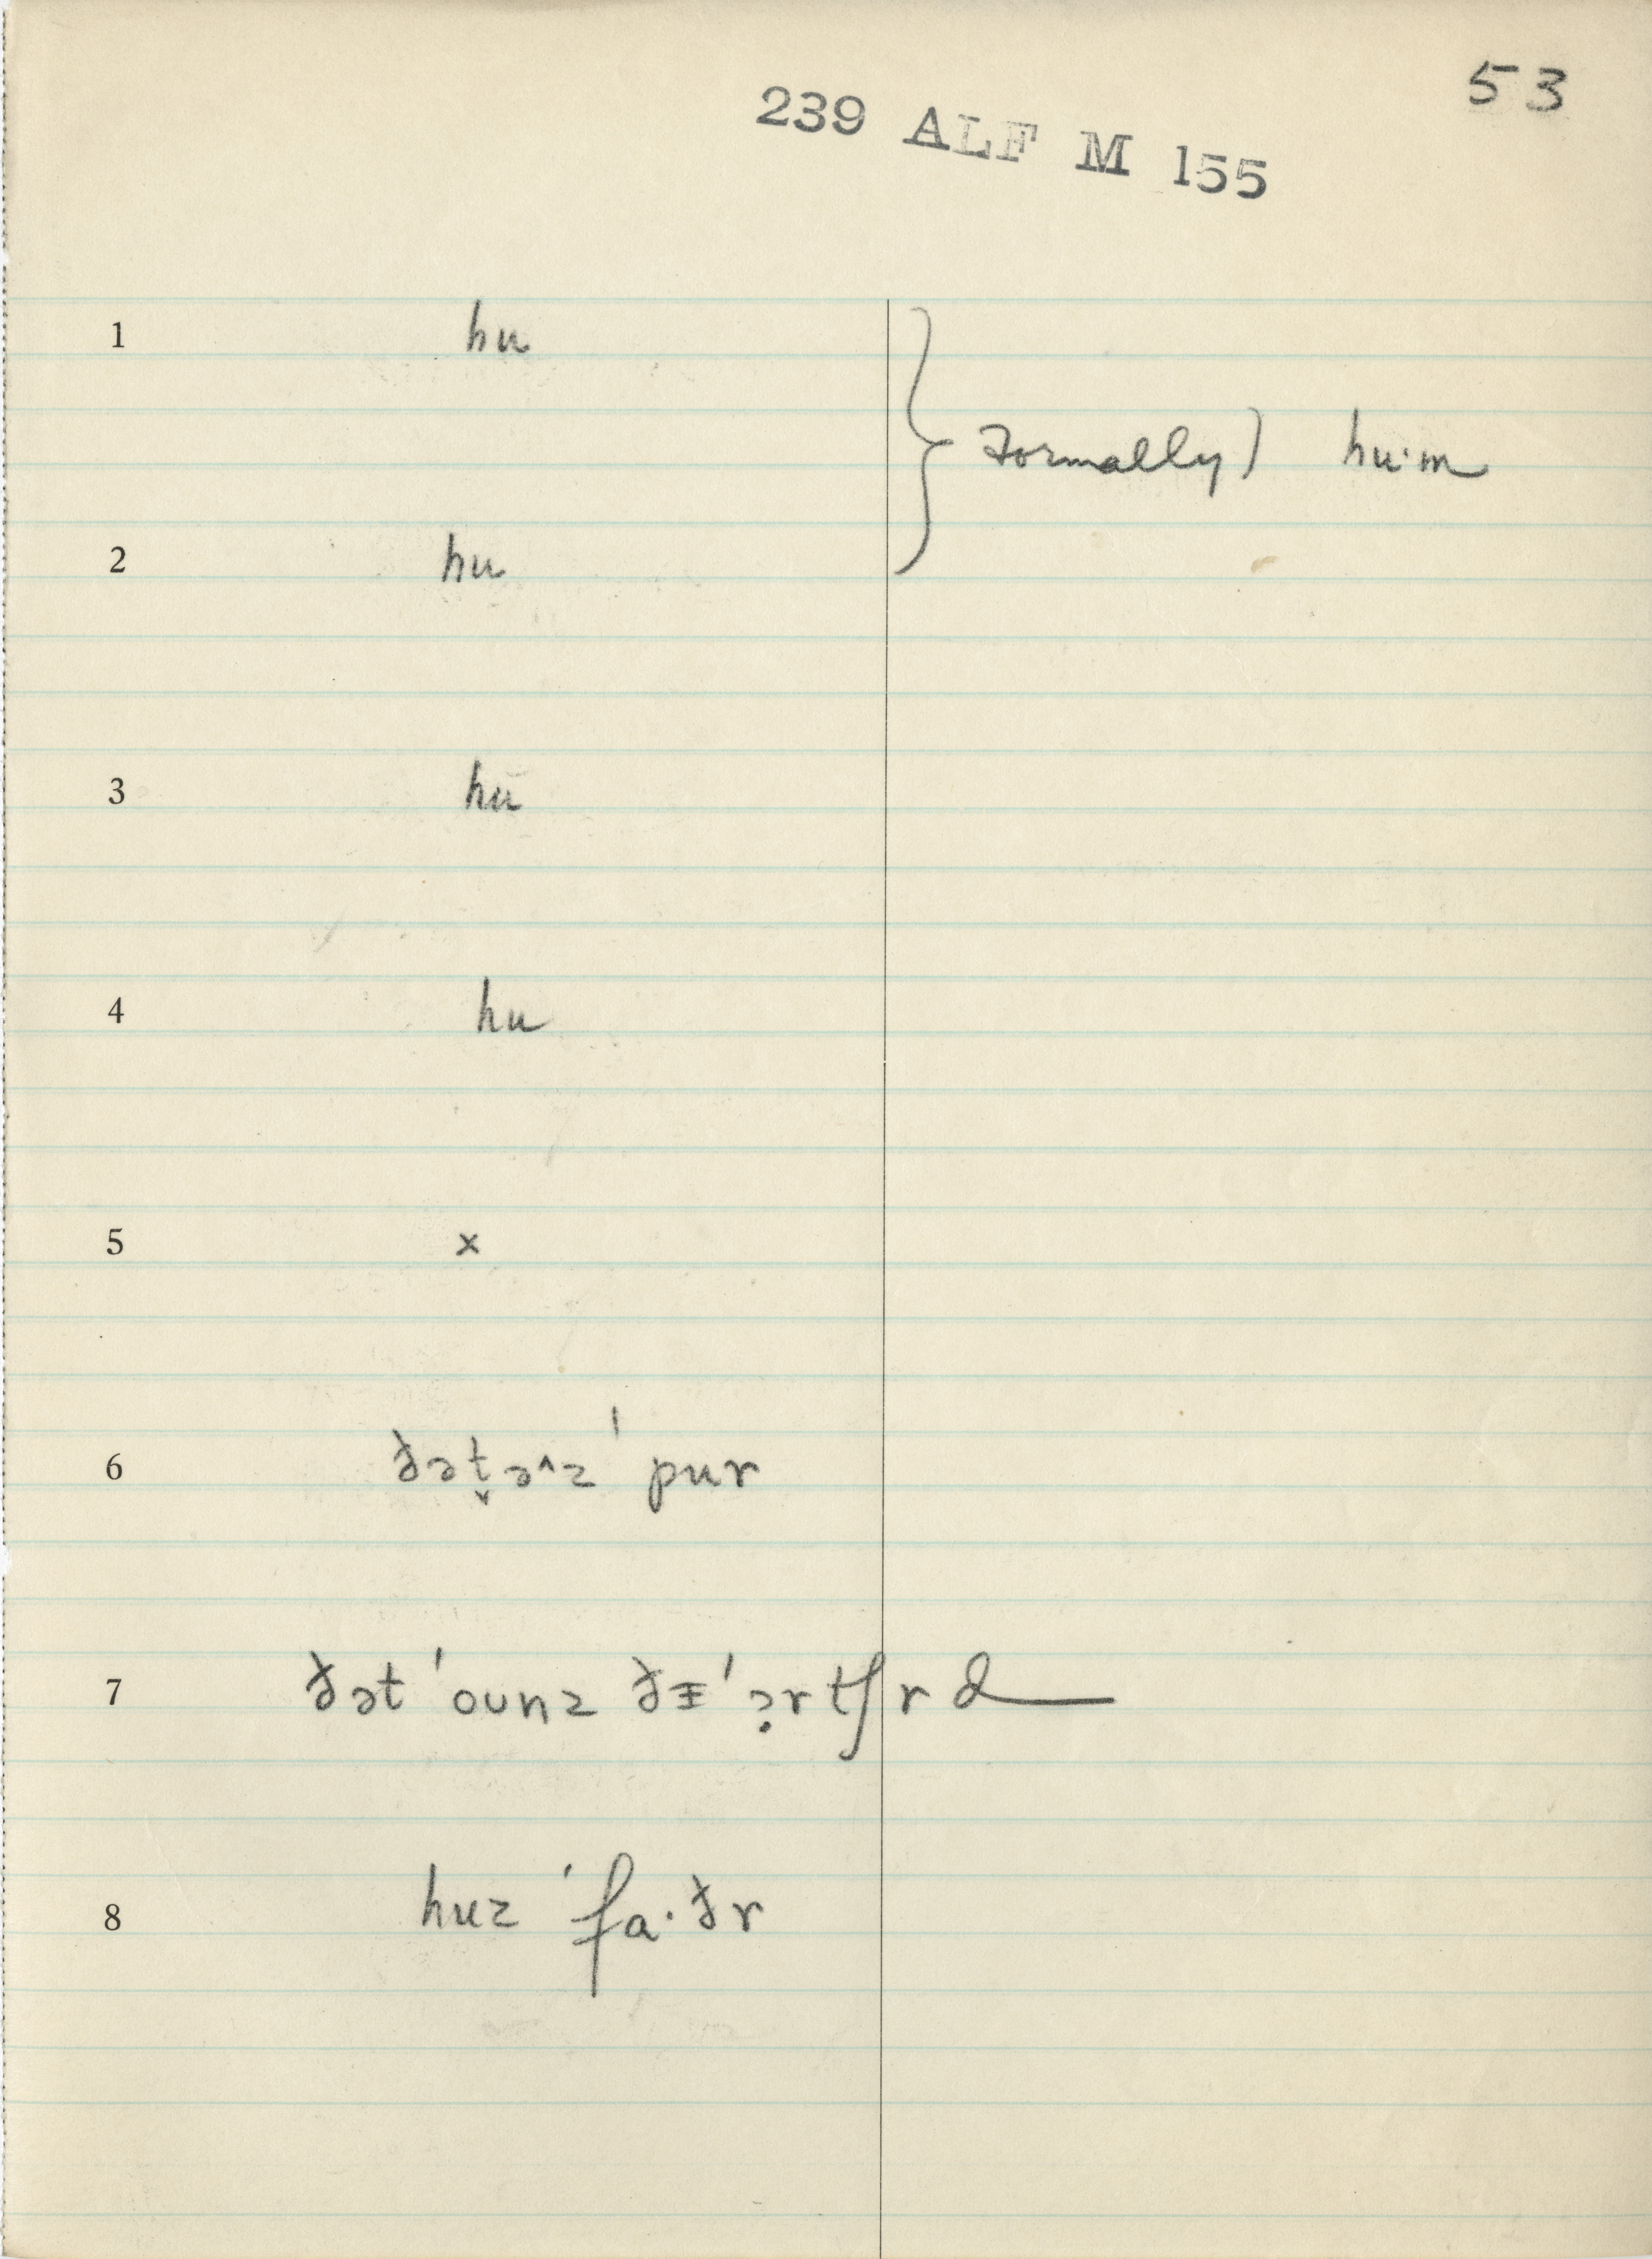 53
239 ALF M 155
1 hu
Formally) hu·m
2 hu
3 hu
4 hu
5 x
6 ðət̬əˆz ˈpur
7 ðət ˈounz ðᵻ ˈɔ̣rtʃrd
8 huz ˈfa·ðr